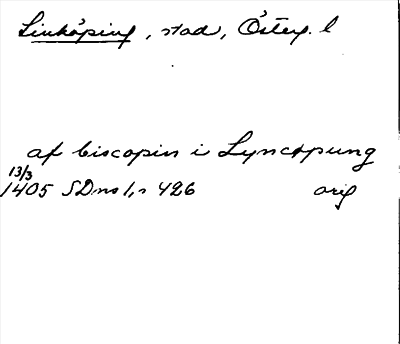 Linköping, stad, Österg. l
af biscopin i Lyncøpung
13/3
1405 SDns 1, s 426 orig